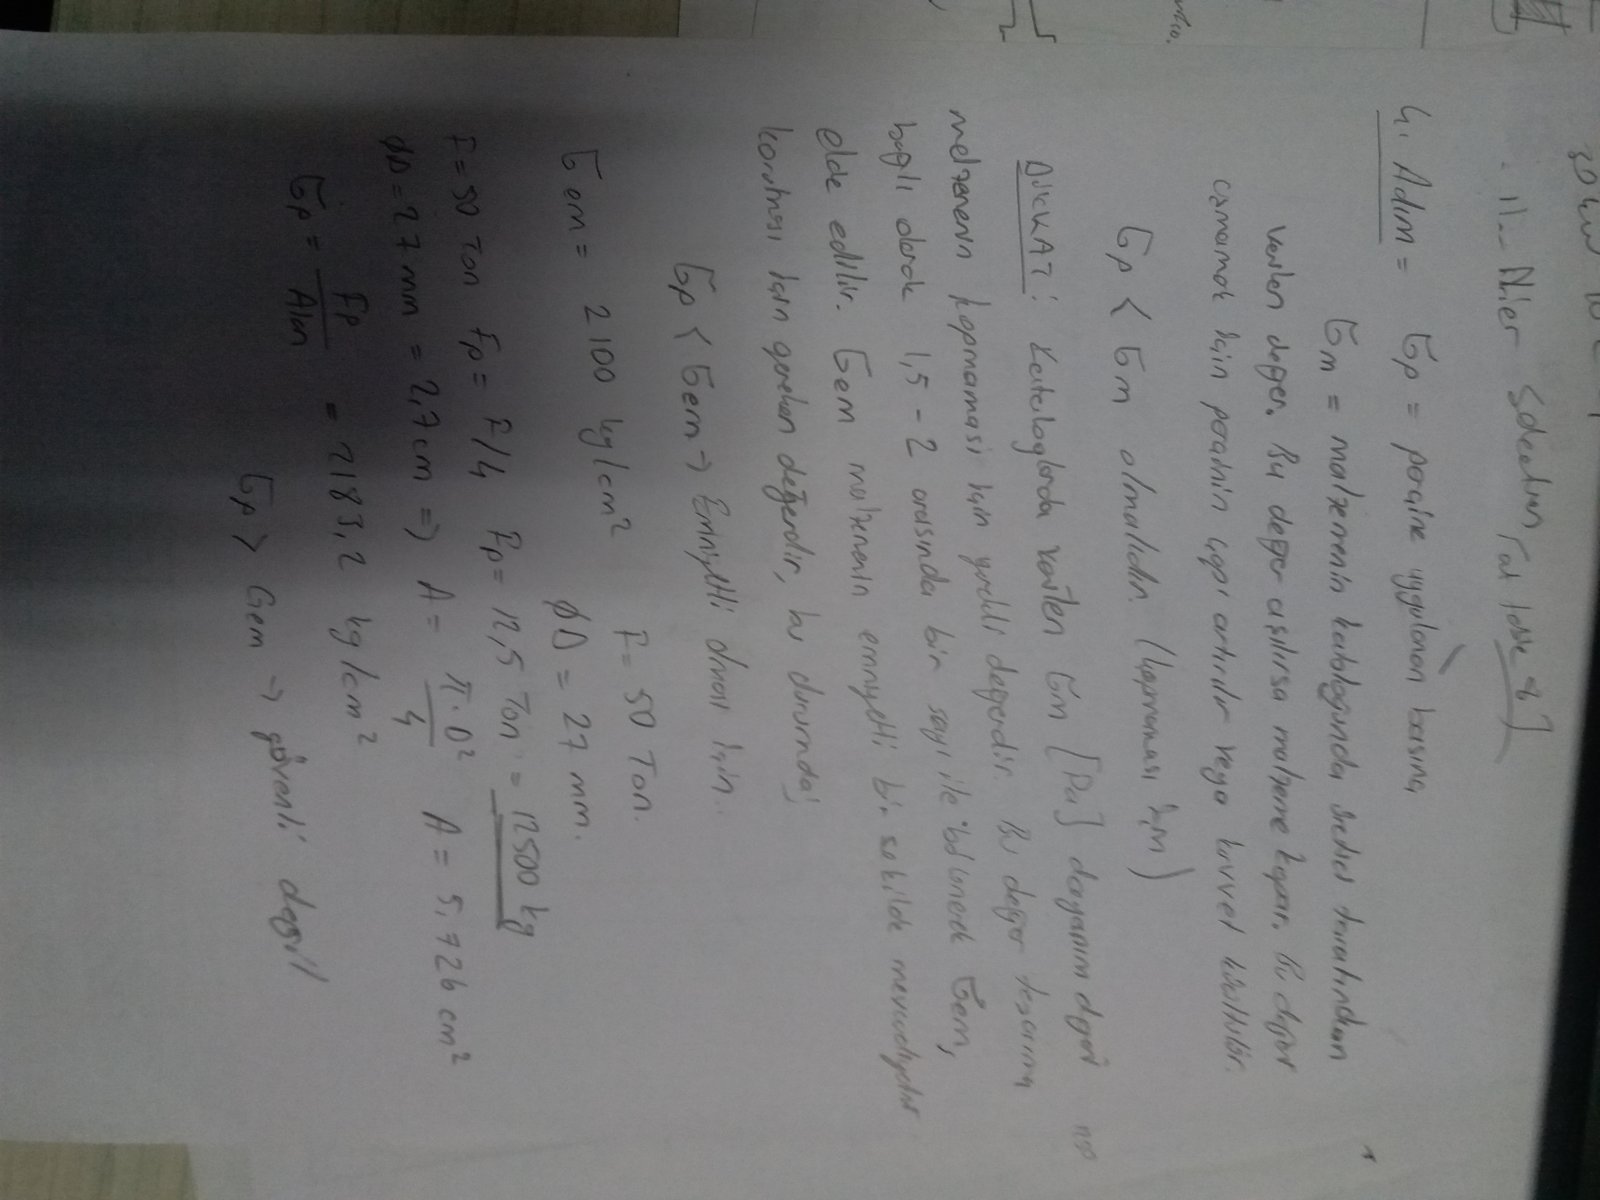 4. Adım = σp = parçaya uygulanan basınç
σm = malzemenin kataloğunda üretici tarafından
verilen değer. Bu değer aşılırsa malzeme kopar. Bu değeri
aşmamak için parçanın çapı artırılır veya kuvvet küçültülür.
σp < σm olmalıdır. (kopmaması için)
DİKKAT: Kataloglarda verilen σm [Pa] dayanım değeri
malzemenin kopmaması için gerekli değerdir. Bu değer tasarıma
bağlı olarak 1,5 - 2 arasında bir sayı ile bölünerek σem,
elde edilir. σem malzemenin emniyetli bir şekilde mevcudiyetini
koruması için gereken değerdir, bu durumda;
σp < σem → Emniyetli olması için.
F = 50 Ton.
σem = 2100 kg/cm² ØD = 27 mm.
F = 50 Ton Fp = F/4 Fp = 12,5 Ton = 12500 kg
ØD = 27 mm = 2,7 cm ⇒ A = π.D²/4 A = 5,726 cm²
σp = Fp/Alan = 2183,2 kg/cm²
σp > σem → güvenli değil